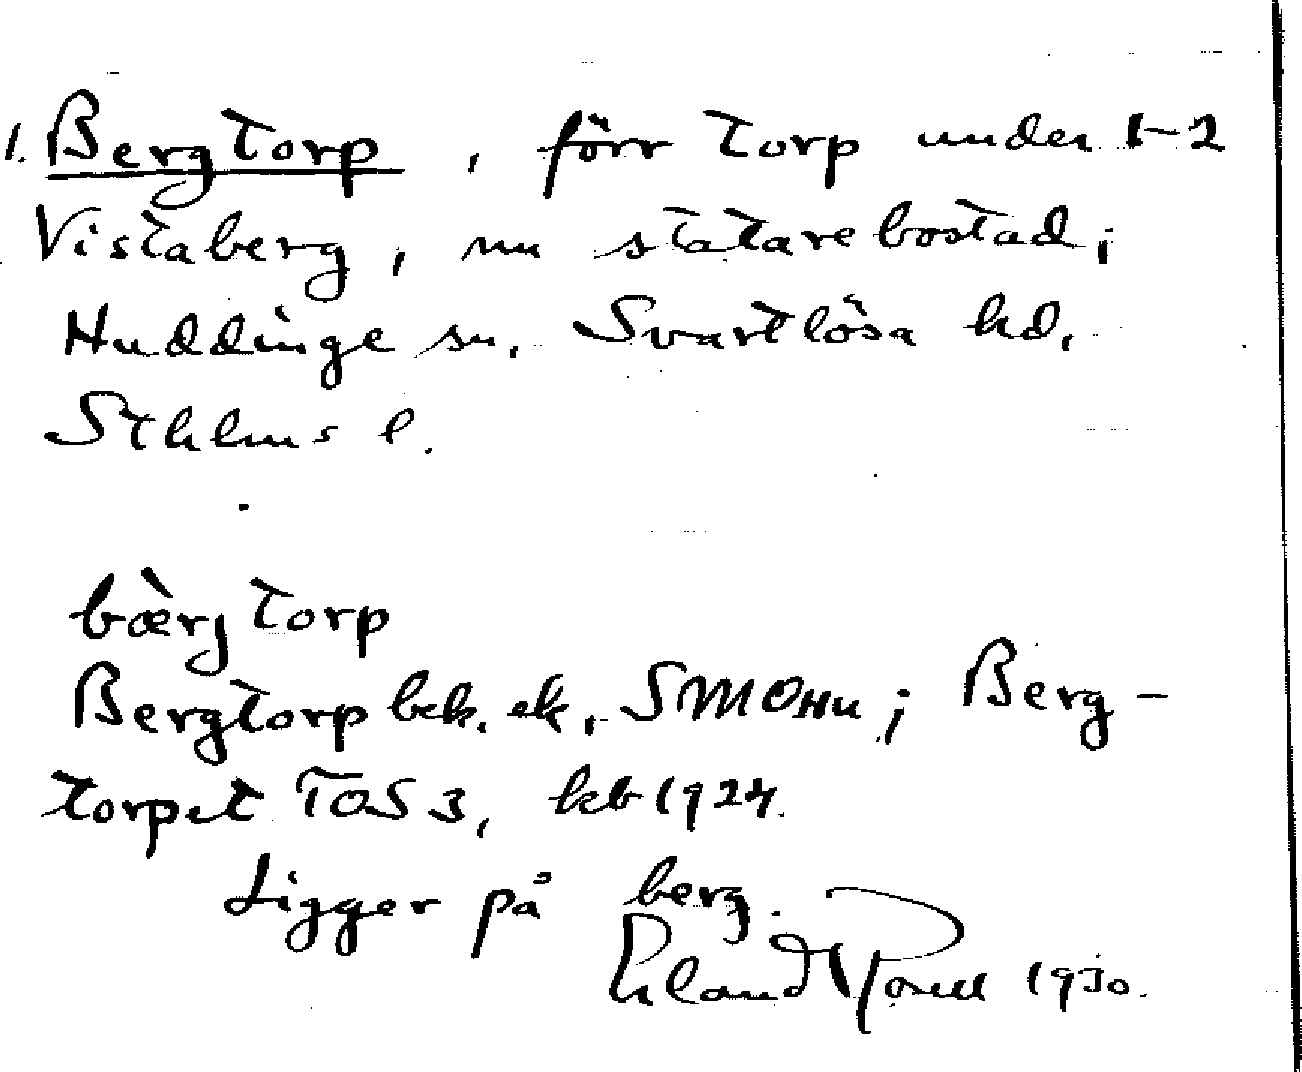 1. Bergtorp, förr torp under 1-2
Vistaberg, nu statarebostad;
Huddinge sn, Svartlösa hd,
Sthlms l.
bærjtorp
Bergtorp bek. ek., SMOHu; Berg-
torpet TOS 3, kb 1924.
Ligger på berg.
Erland Rosell 1930.